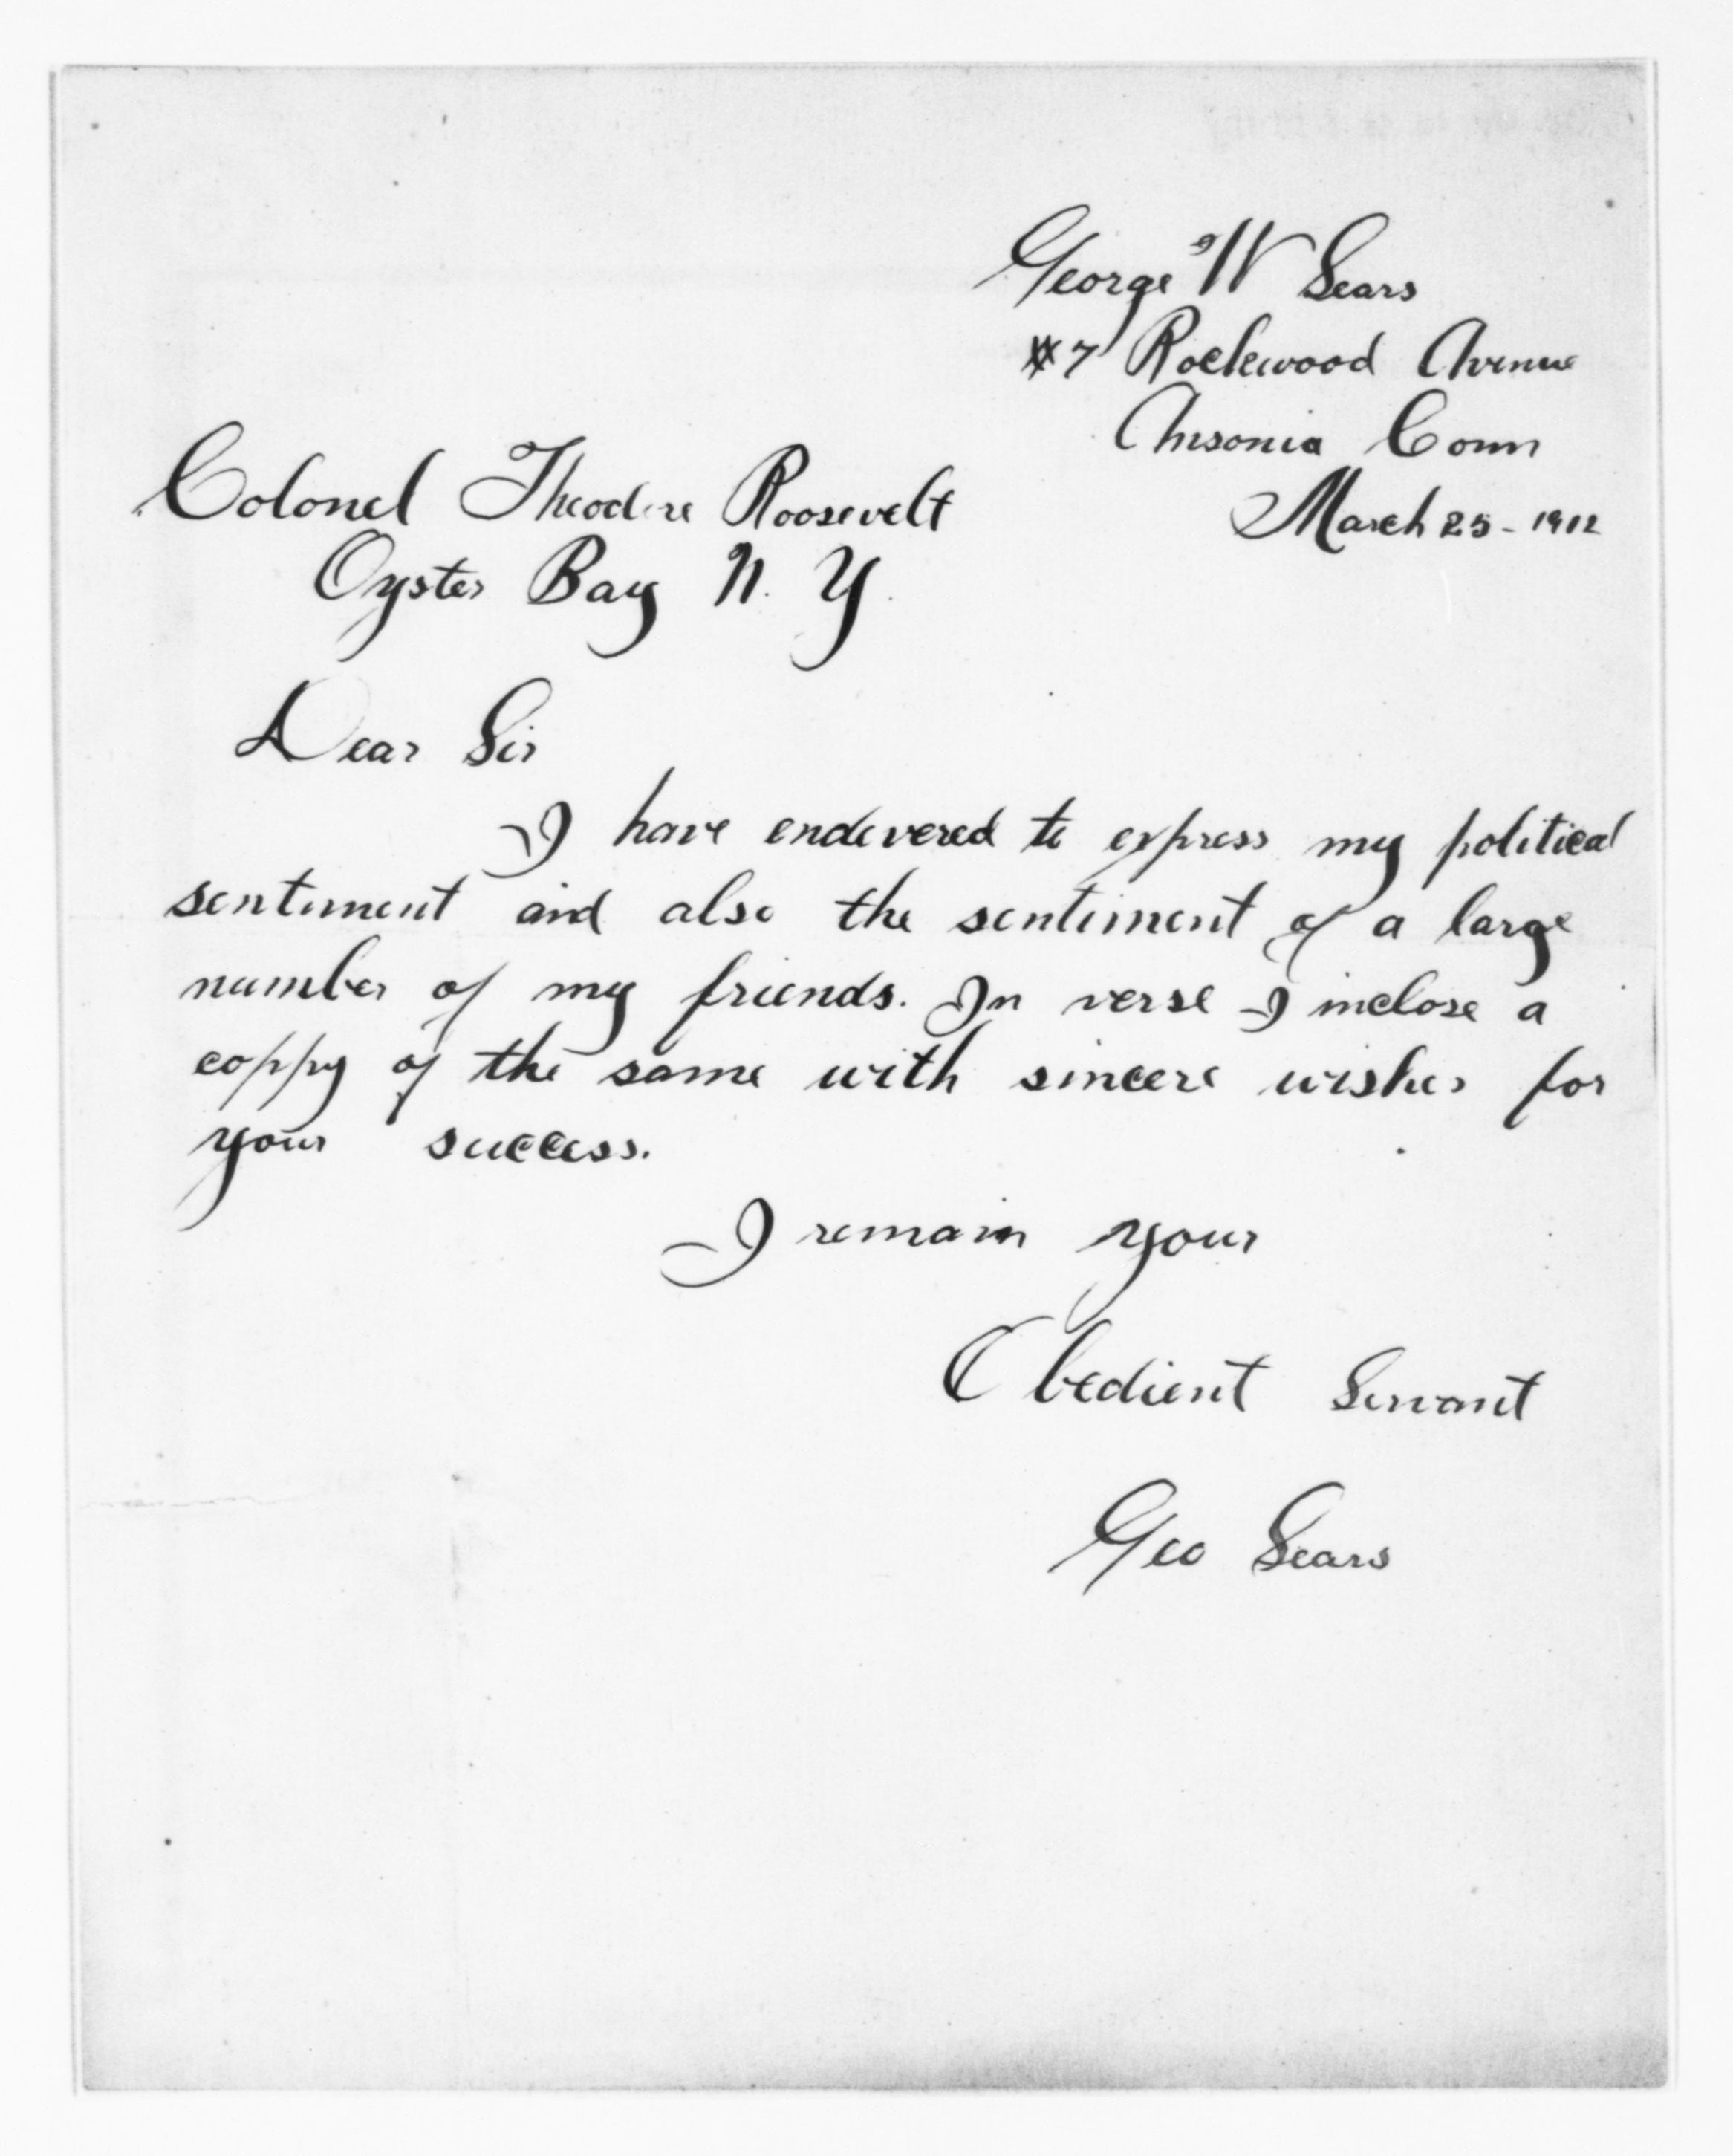 George W Sears
#7 Rockwood Avenue
Ansonia Conn
March 25 - 1912
Colonel Theodore Roosevelt
Oyster Bay N. Y.
Dear Sir
I have endevered to express my political
sentiment and also the sentiment of a large
number of my friends. In verse I inclose a
coppy of the same with sincere wishes for
your success.
I remain your
Obedient Servant
Geo Sears